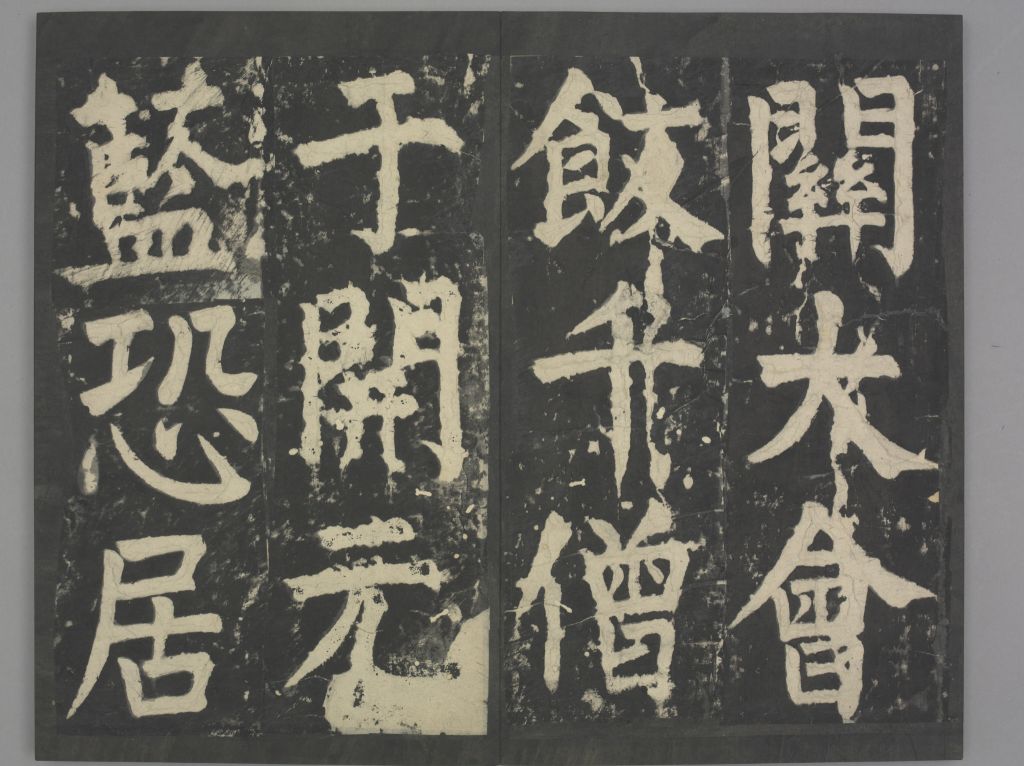 關大會
飯千僧
于開元
藍恐居